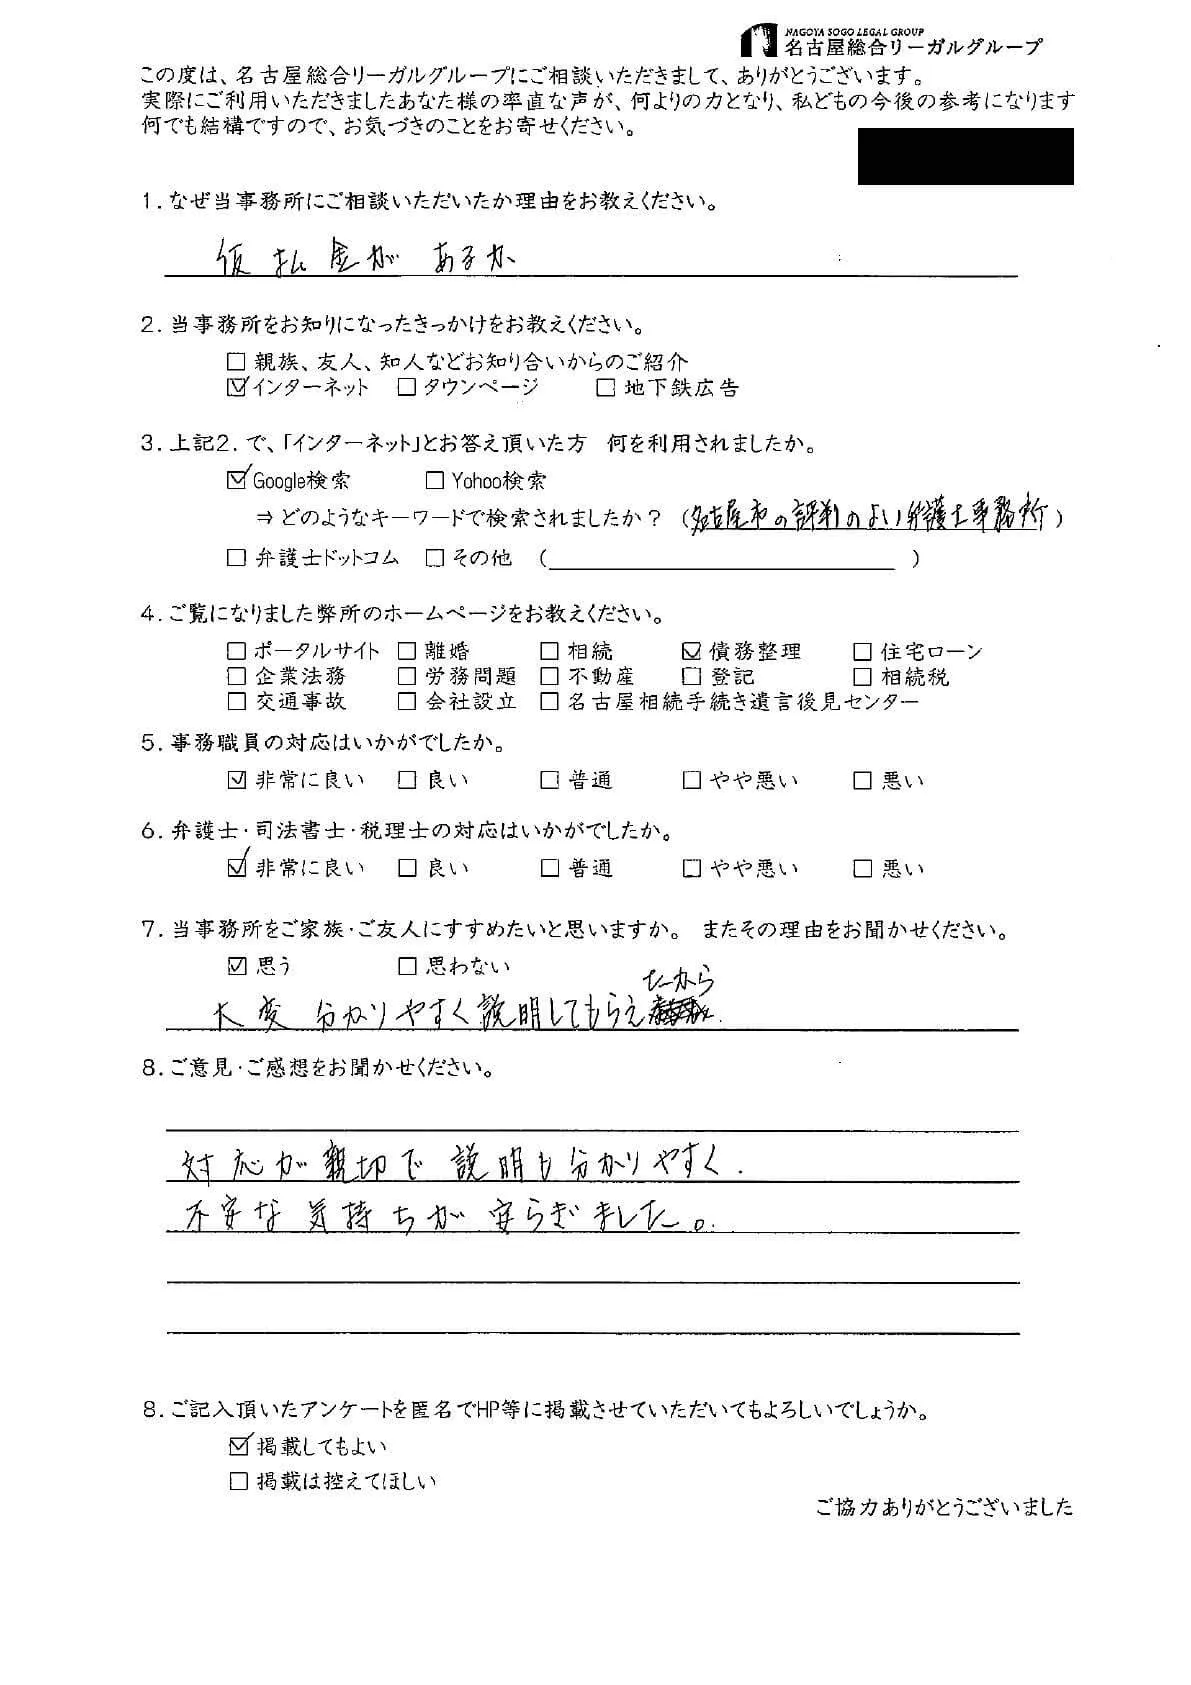 NAGOYA SOGO LEGAL GROUP
名古屋総合リーガルグループ
この度は、名古屋総合リーガルグループにご相談いただきまして、ありがとうございます。
実際にご利用いただきましたあなた様の率直な声が、何よりの力となり、私どもの今後の参考になります
何でも結構ですので、お気づきのことをお寄せください。
1.なぜ当事務所にご相談いただいたか理由をお教えください。
仮払金があるか
2.当事務所をお知りになったきっかけをお教えください。
□ 親族、友人、知人などお知り合いからのご紹介
☑ インターネット □ タウンページ □ 地下鉄広告
3.上記2.で、「インターネット」とお答え頂いた方 何を利用されましたか。
☑ Google検索 □ Yohoo検索
⇒ どのようなキーワードで検索されましたか? (名古屋市の評判のよい弁護士事務所)
□ 弁護士ドットコム □ その他 ( )
4.ご覧になりました弊所のホームページをお教えください。
□ ポータルサイト □ 離婚 □ 相続 ☑ 債務整理 □ 住宅ローン
□ 企業法務 □ 労務問題 □ 不動産 □ 登記 □ 相続税
□ 交通事故 □ 会社設立 □ 名古屋相続手続き遺言後見センター
5.事務職員の対応はいかがでしたか。
☑ 非常に良い □ 良い □ 普通 □ やや悪い □ 悪い
6.弁護士・司法書士・税理士の対応はいかがでしたか。
☑ 非常に良い □ 良い □ 普通 □ やや悪い □ 悪い
7.当事務所をご家族・ご友人にすすめたいと思いますか。 またその理由をお聞かせください。
☑ 思う □ 思わない
大変分かりやすく説明してもらえたから
8.ご意見・ご感想をお聞かせください。
対応が親切で説明も分かりやすく、
不安な気持ちが安らぎました。
8.ご記入頂いたアンケートを匿名でHP等に掲載させていただいてもよろしいでしょうか。
☑ 掲載してもよい
□ 掲載は控えてほしい
ご協力ありがとうございました